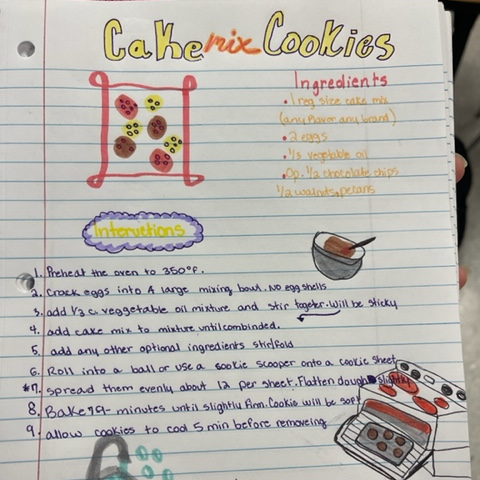 Cake mix Cookies
Ingredients
• 1 reg size cake mix
(any flavor any brand)
• 2 eggs
• 1/3 vegetable oil
• Op. 1/2 chocolate chips
1/2 walnuts, pecans
Interuetions
1. Preheat the oven to 350°F.
2. Crack eggs into A large mixing bowl. NO egg shells
3. add 1/3 c. veggetable oil mixture and stir togeter. Will be sticky
4. add cake mix to mixture until combinded.
5. add any other optional ingredients stir/fold
6. Roll into a ball or use a cookie scooper onto a cookie sheet
*7. spread them evenly about 12 per sheet. Flatten dough slightly
8. Bake 79- minutes until slightly firm. Cookie will be soft
9. allow cookies to cool 5 min before removeing